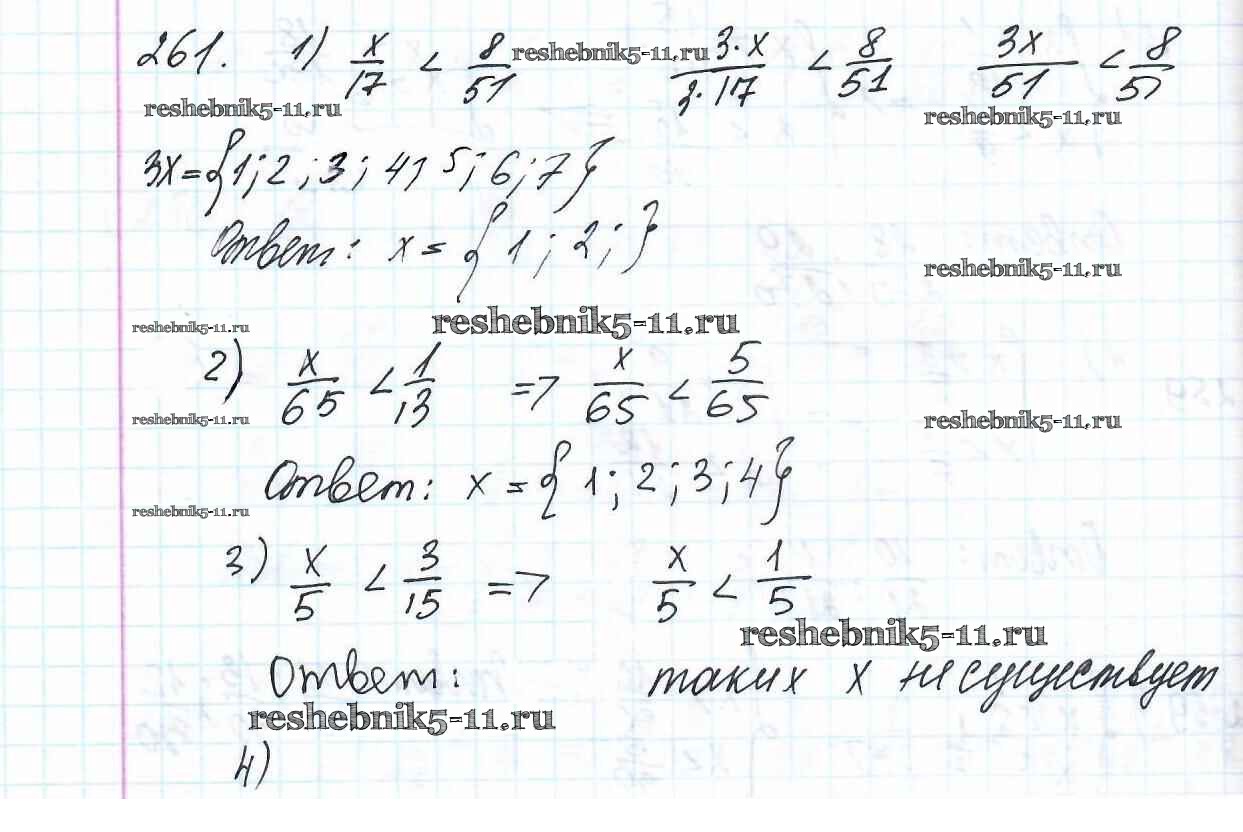 261. 1) x/17 < 8/51 reshebnik5-11.ru 3·x/3·17 < 8/51 3x/51 < 8/51
reshebnik5-11.ru reshebnik5-11.ru
3x={1; 2; 3; 4; 5; 6; 7}
Ответ: x = { 1 ; 2 ; }
reshebnik5-11.ru
reshebnik5-11.ru reshebnik5-11.ru
2) x/65 < 1/13 => x/65 < 5/65
reshebnik5-11.ru reshebnik5-11.ru
Ответ: x = { 1 ; 2 ; 3 ; 4 }
reshebnik5-11.ru
3) x/5 < 3/15 => x/5 < 1/5
reshebnik5-11.ru
Ответ: таких x не существует
reshebnik5-11.ru
4)